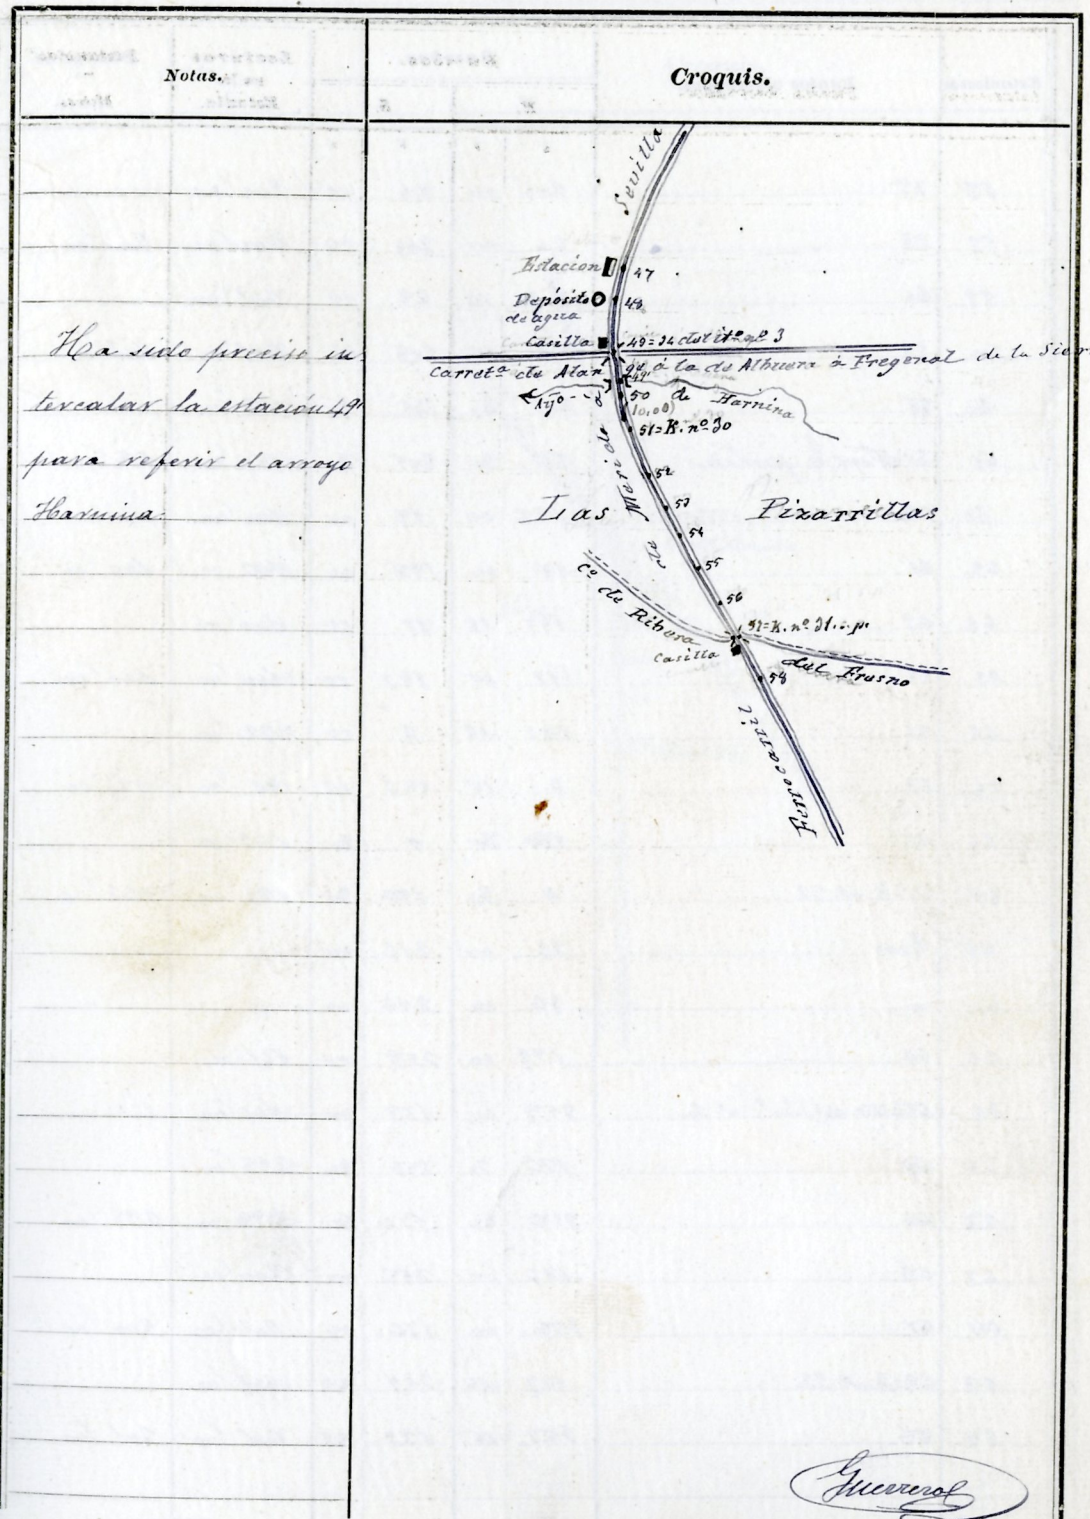 Notas.
Croquis.
Ha sido preciso in-
tercalar la estación 49'
para referir el arroyo
Harnina
Sevilla
Estacion
47
Depósito
de agua
48
Casilla
49=24 del itº nº 3
Carretª de Alan ge á la de Albuera á Fregenal de la Sierr
49'
Ayo de Harnina
50
(10,00)
51=K. nº 30
52
53
Las Pizarrillas
54
55
56
Cº de Ribera del Fresno
57=K. nº 31 s. p.
Casilla
58
Ferrocarril de Merida a
Guerrero